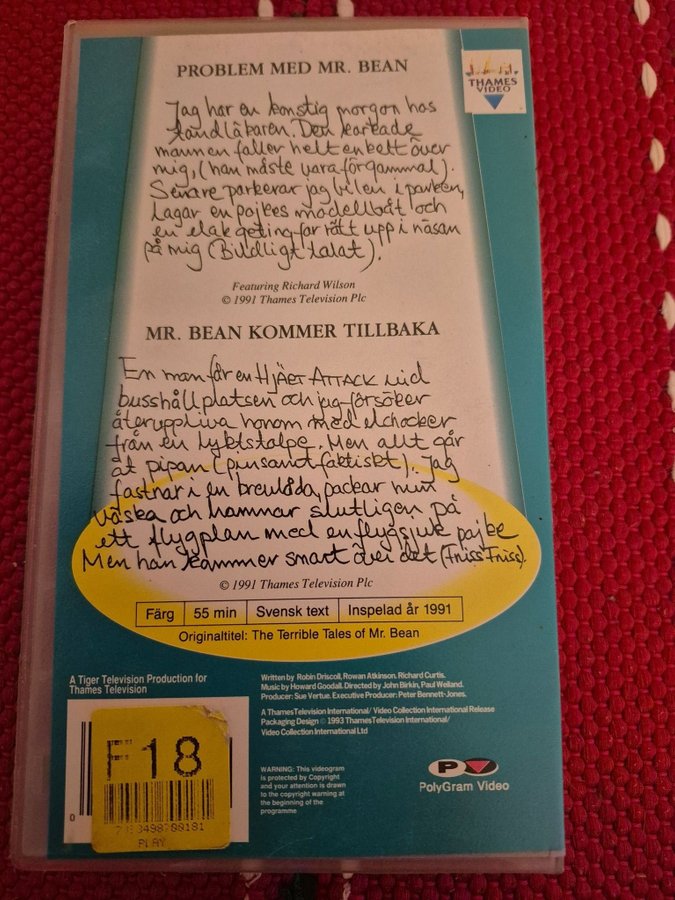 PROBLEM MED MR. BEAN
THAMES
VIDEO
Jag har en konstig morgon hos
tandläkaren. Den korkade
mannen faller helt enkelt över
mig, (han måste vara för gammal).
Senare parkerar jag bilen i parken,
lagar en pojkes modellbåt och
en elak geting far rätt upp i näsan
på mig (Bildligt talat).
Featuring Richard Wilson
© 1991 Thames Television Plc
MR. BEAN KOMMER TILLBAKA
En man får en HJÄRT ATTACK vid
busshållplatsen och jag försöker
återuppliva honom med elchocker
från en lyktstolpe. Men allt går
åt pipan (pinsamt faktiskt). Jag
fastnar i en brevlåda, packar min
väska och hamnar slutligen på
ett flygplan med en flygsjuk pojke
Men han kommer snart över det (Fniss Fniss).
© 1991 Thames Television Plc
Färg 55 min Svensk text Inspelad år 1991
Originaltitel: The Terrible Tales of Mr. Bean
A Tiger Television Production for
Thames Television
Written by Robin Driscoll, Rowan Atkinson. Richard Curtis.
Music by Howard Goodall. Directed by John Birkin, Paul Weiland.
Producer: Sue Vertue. Executive Producer: Peter Bennett-Jones.
A Thames Television International/ Video Collection International Release
Packaging Design © 1993 Thames Television International/
Video Collection International Ltd
WARNING: This videogram
is protected by Copyright
and your attention is drawn
to the copyright warning at
the beginning of the
programme
PolyGram Video
F18
0
PLAY